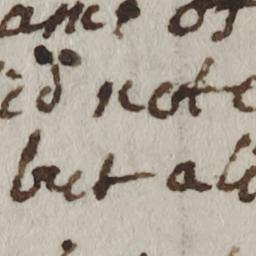 ance of
id note
but al